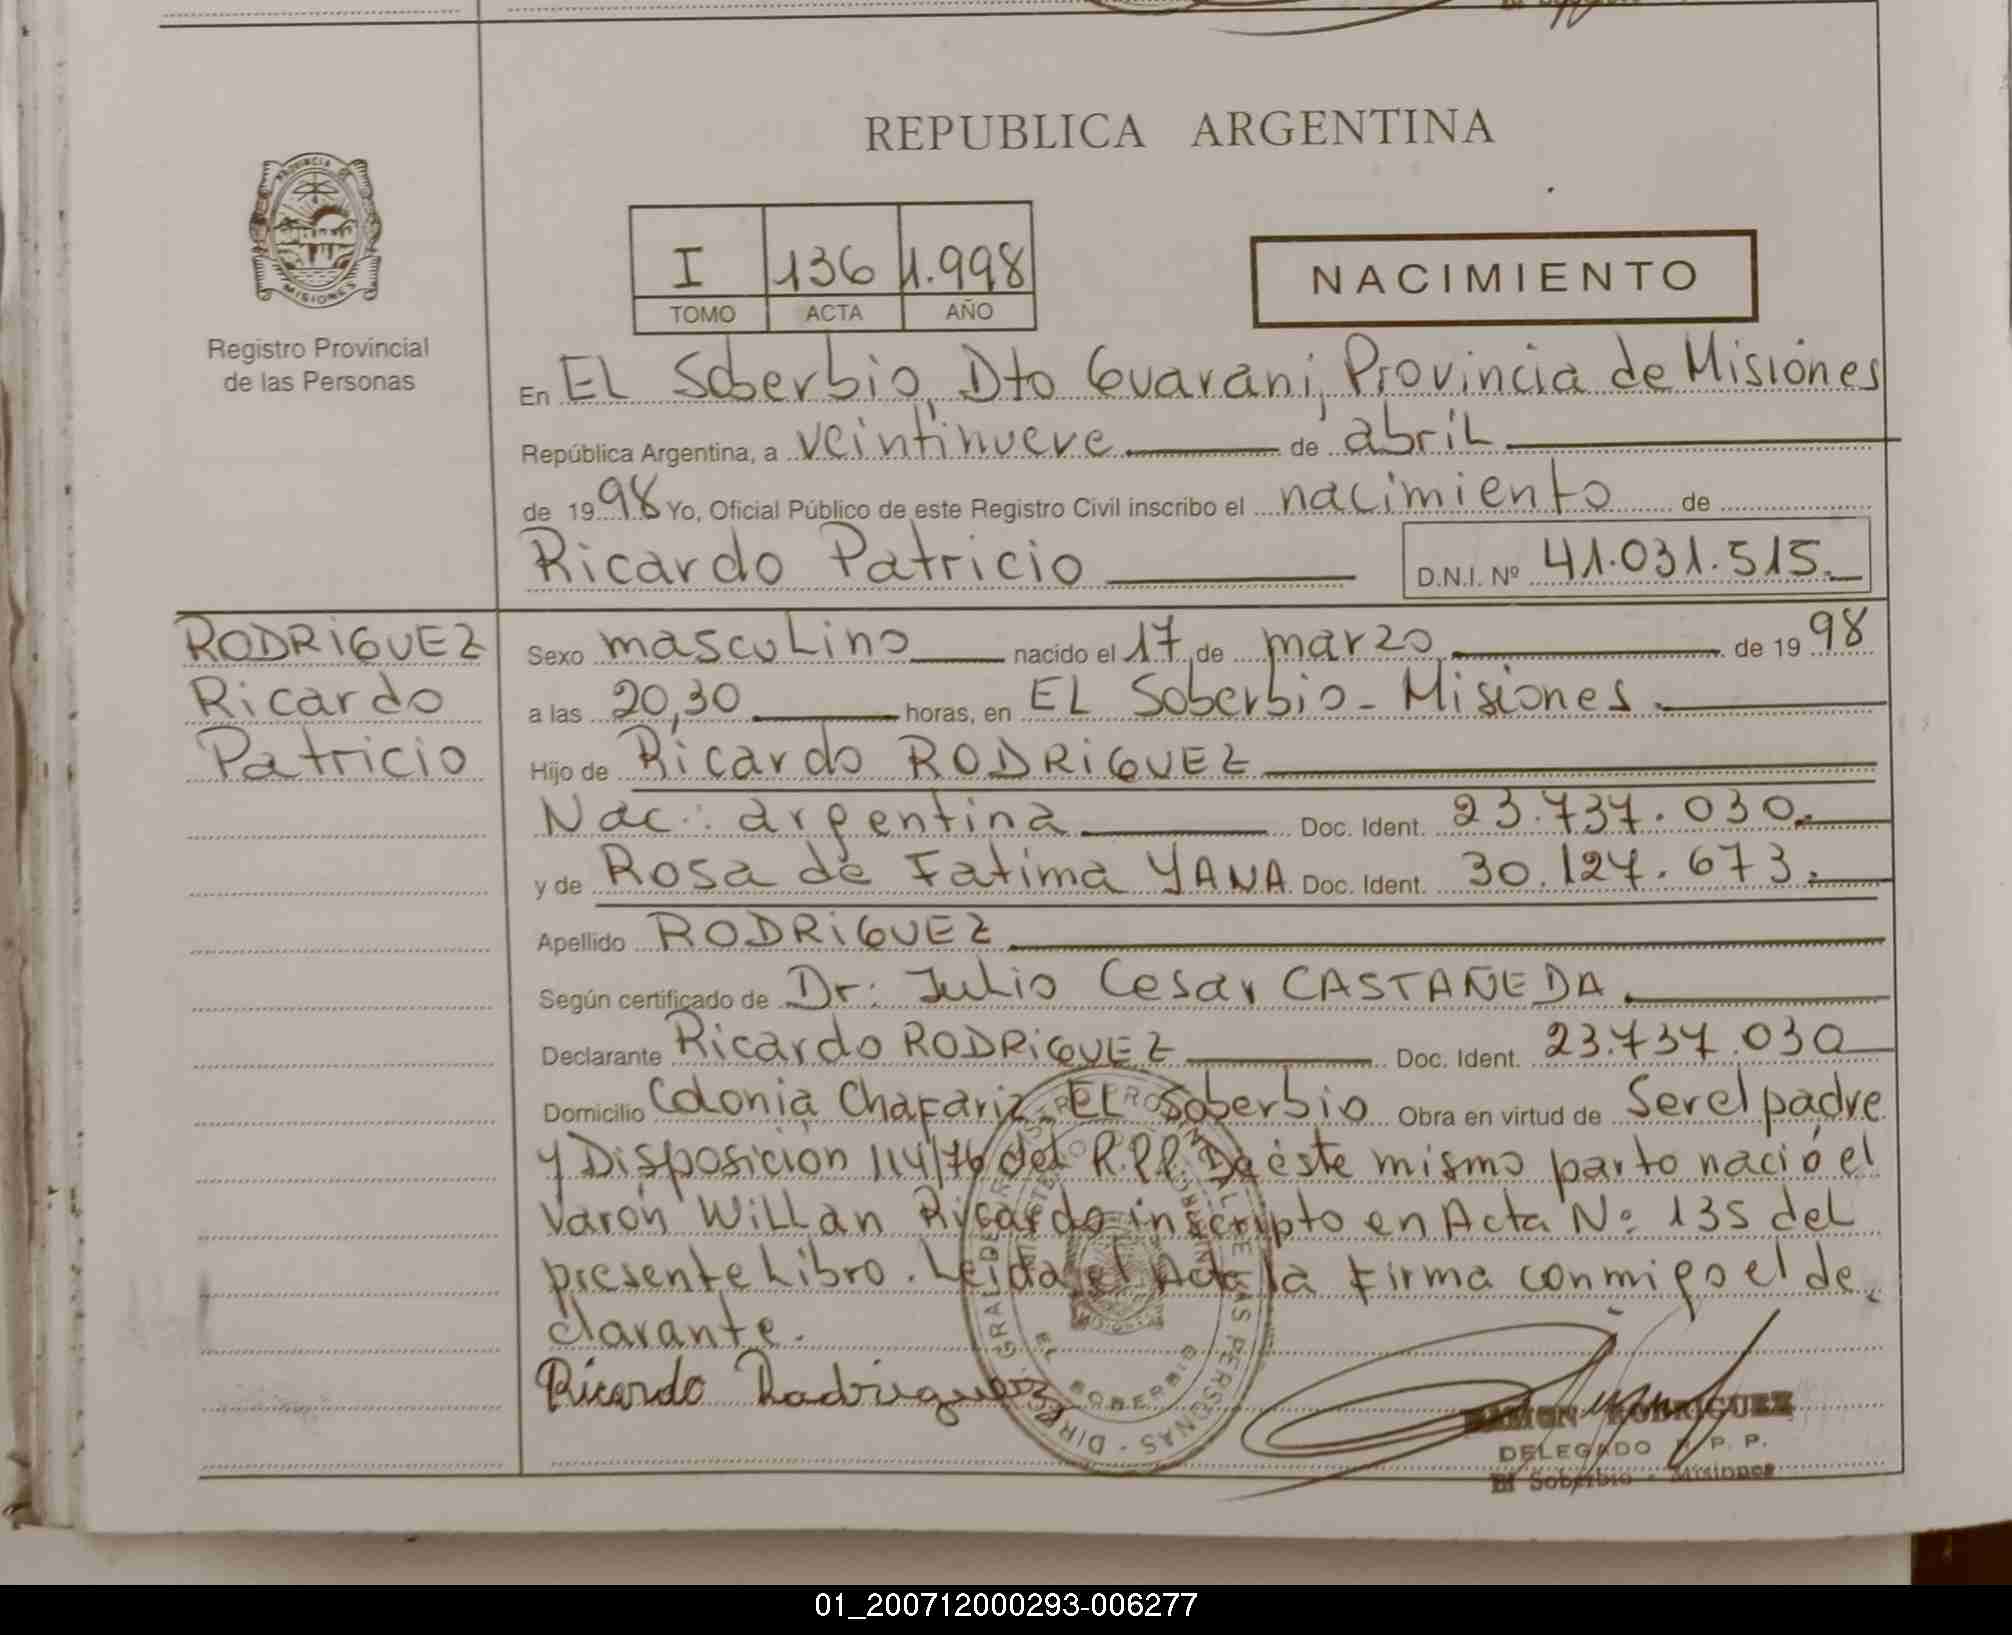 REPUBLICA ARGENTINA
PROVINCIA DE
MISIONES
Registro Provincial
de las Personas
I 136 1.998
TOMO ACTA AÑO
NACIMIENTO
En EL Soberbio, Dto Guarani, Provincia de Misiónes
República Argentina, a veintinueve de abril
de 1998 Yo, Oficial Público de este Registro Civil inscribo el nacimiento de
Ricardo Patricio D.N.I. Nº 41.031.515.
RODRIGUEZ
Ricardo
Patricio
Sexo masculino nacido el 17 de marzo de 1998
a las 20,30 horas, en EL Soberbio - Misiones.
Hijo de Ricardo RODRIGUEZ
Nac.: argentina Doc. Ident. 23.737.030.
y de Rosa de Fatima YANA Doc. Ident. 30.127.673.
Apellido RODRIGUEZ
Según certificado de Dr. Julio Cesar CASTAÑEDA
Declarante Ricardo RODRIGUEZ Doc. Ident. 23.737.030
Domicilio Colonia Chafariz EL Soberbio Obra en virtud de Ser el padre
y Disposición 114/76 del R.P.P. De éste mismo parto nació el
Varón Willan Ricardo inscripto en Acta Nº 135 del
presente Libro. Leida el Acta la firma conmigo el de
clarante.
Ricardo Rodriguez
RAMON RODRIGUEZ
DELEGADO R. P. P.
El Soberbio - Misiones
01_200712000293-006277